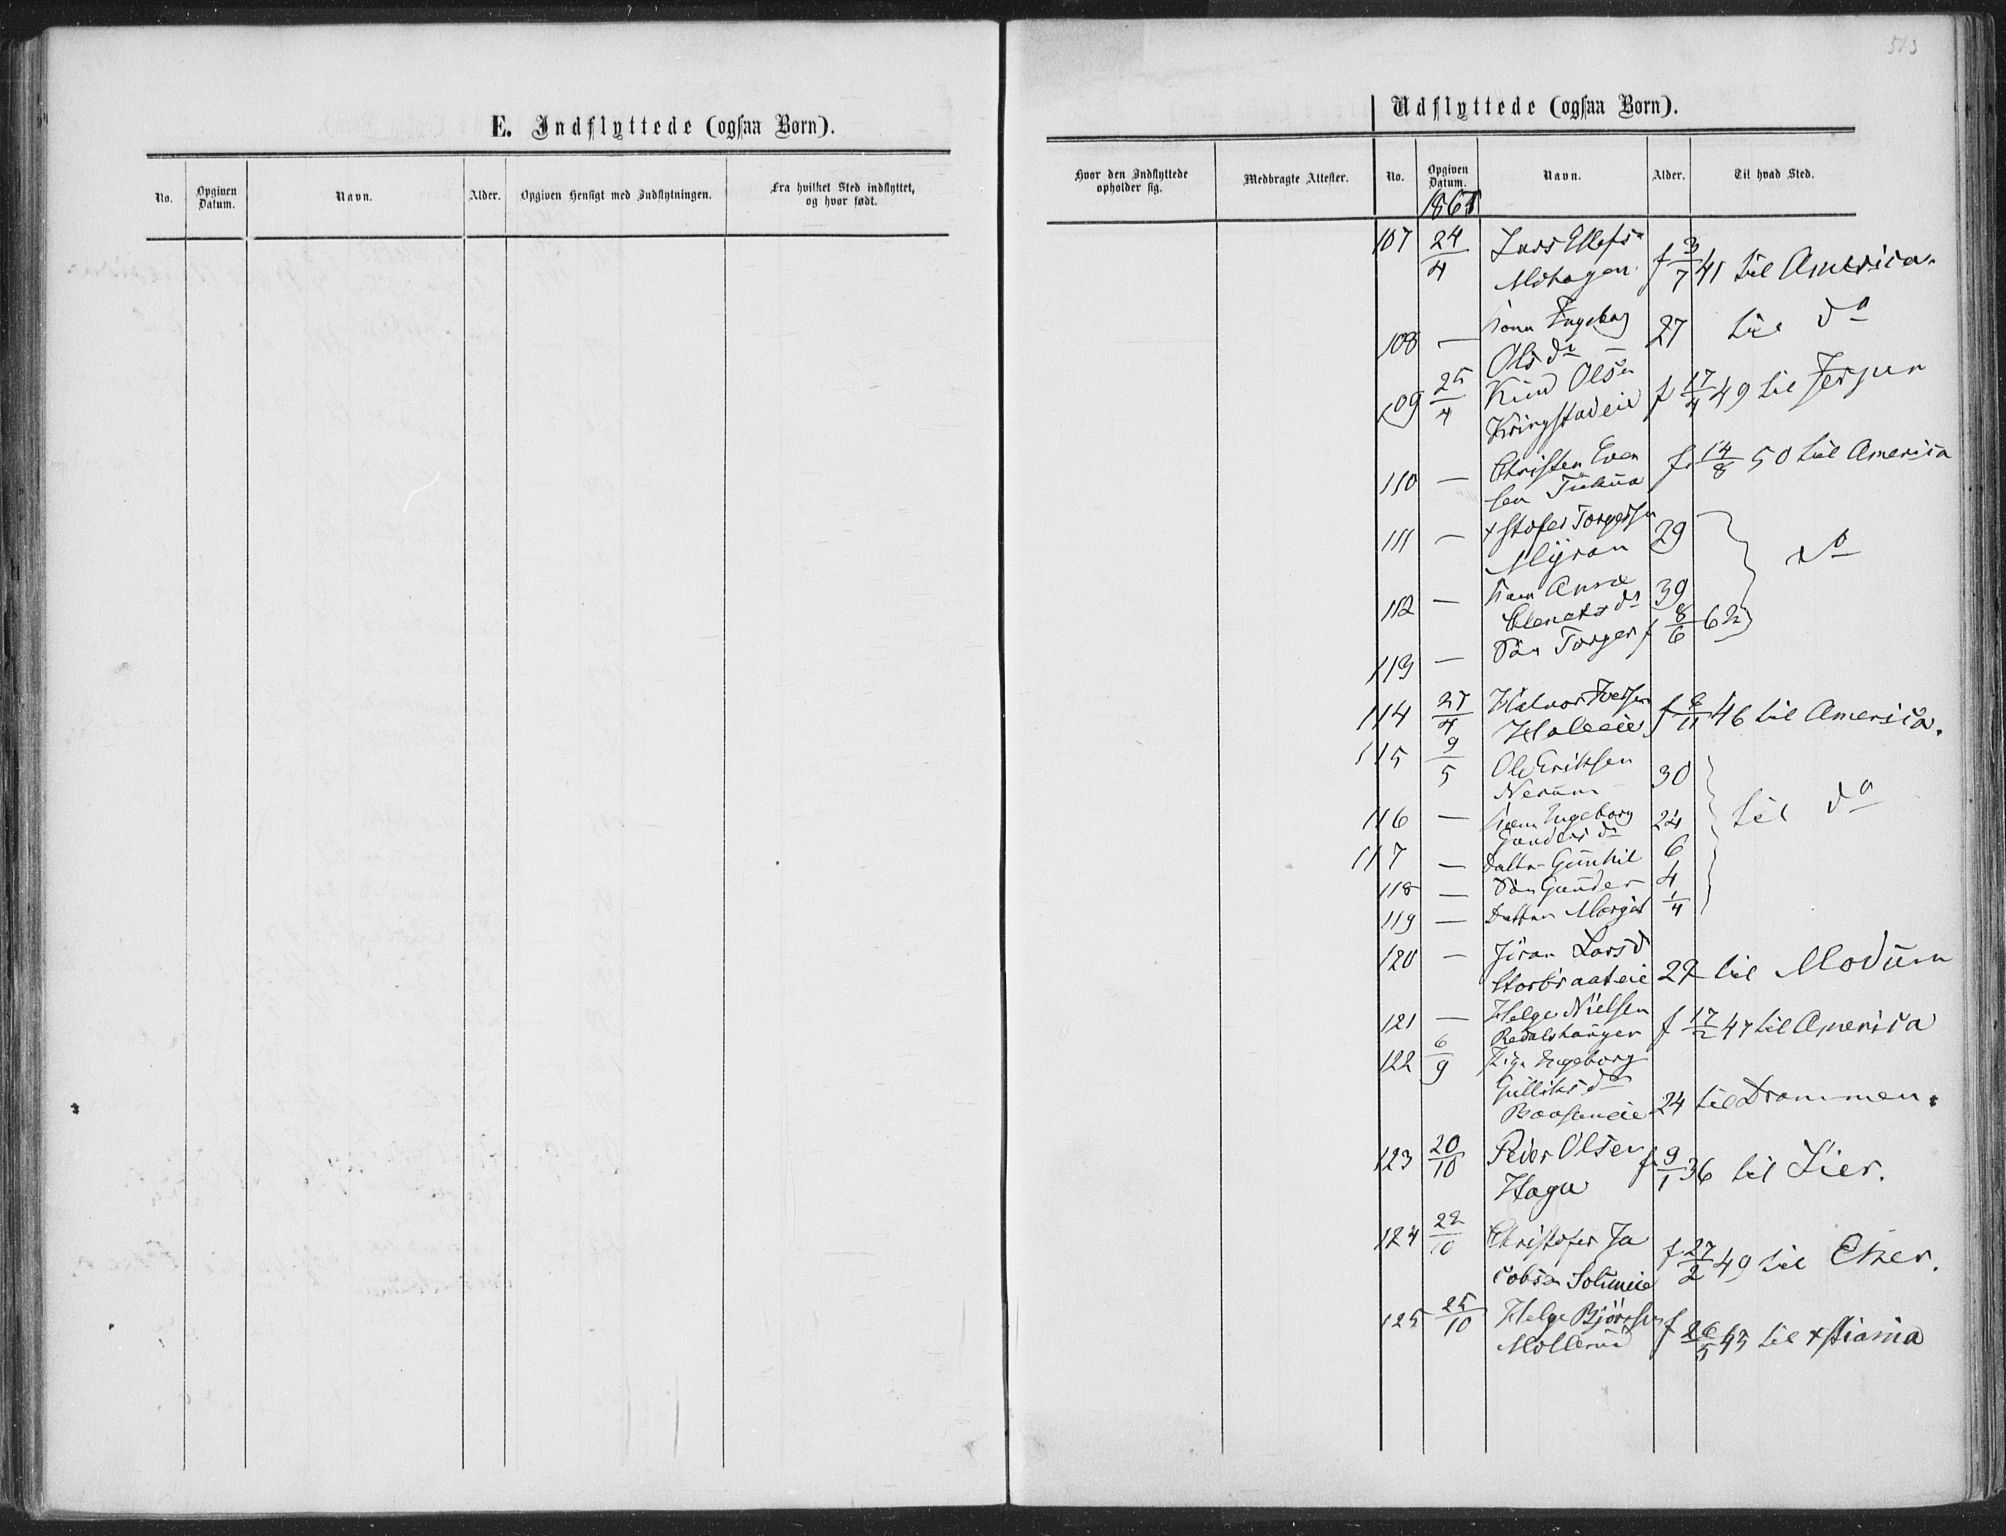 513
E. Indflyttede (ogsaa Børn).
No. Opgiven Datum. Navn. Alder. Opgiven Hensigt med Indflytningen. Fra hvilket Sted indflyttet, og hvor født.
Udflyttede (ogsaa Børn).
Hvor den Indflyttede opholder sig. Medbragte Attester. No. Opgiven Datum. Navn. Alder. Til hvad Sted.
1867
107 24/4 Lars Ellefsn
Mohagen f 3/7 41 til America.
108 — Kone Ingeborg
Olsdr 27 til do
109 25/4 Knud Olsen
Kringstadeie f 17/4 49 til
110 — Christen Even
sen f 14/8 50 til America
111 — xstofer Torgersen
Myran 29
112 — Kone Anne
dr 39 do
113 — Søn Torger f 8/6 62
114 27/4 Halvor Iversen
Holeeie f 6/11 46 til America.
115 9/5 Ole Eriksen
Nerum 30
116 — Kone Ingeborg
Gundersdr 24 til do
117 — Datter Gunhil 6
118 — Søn Gunder 4
119 — Datter Margit 1/4
120 — Jöran Larsd
Storbraateie 22 til Modum
121 — Helge Nielsen
f 17/2 47 til America
122 6/9 Pige Ingeborg
Gulliksdr
24 til Drammen.
123 20/10 Peder Olsen
Haga f 9/1 36 til Lier.
124 22/10 Christofer Ja
cobsen Solumeie f 27/2 49 til Eker.
125 25/10 Helge Björnsen
Mollerud f 26/5 43 til xstiania